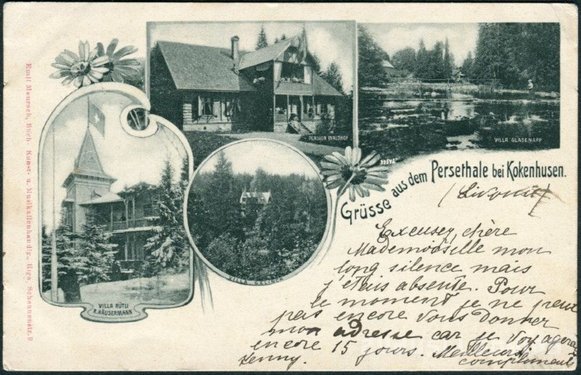 PENSION WALDHOF
VILLA GLASENAPP
VILLA RÜTLI
K. HÄUSERMANN
Grüsse aus dem Persethale bei Kokenhusen.
Emil Mausach, Buch- Kunst- u. Musikalienhandlg. Riga Scheunenstr. 9
(Livonie)
Excusez, chère
Mademoiselle mon
long silence mais
j'étais absente. Pour
le moment je ne peux
pas encore vous donner
mon adresse car je voyagerai
encore 15 jours. Meilleurs
compliments
Jenny.